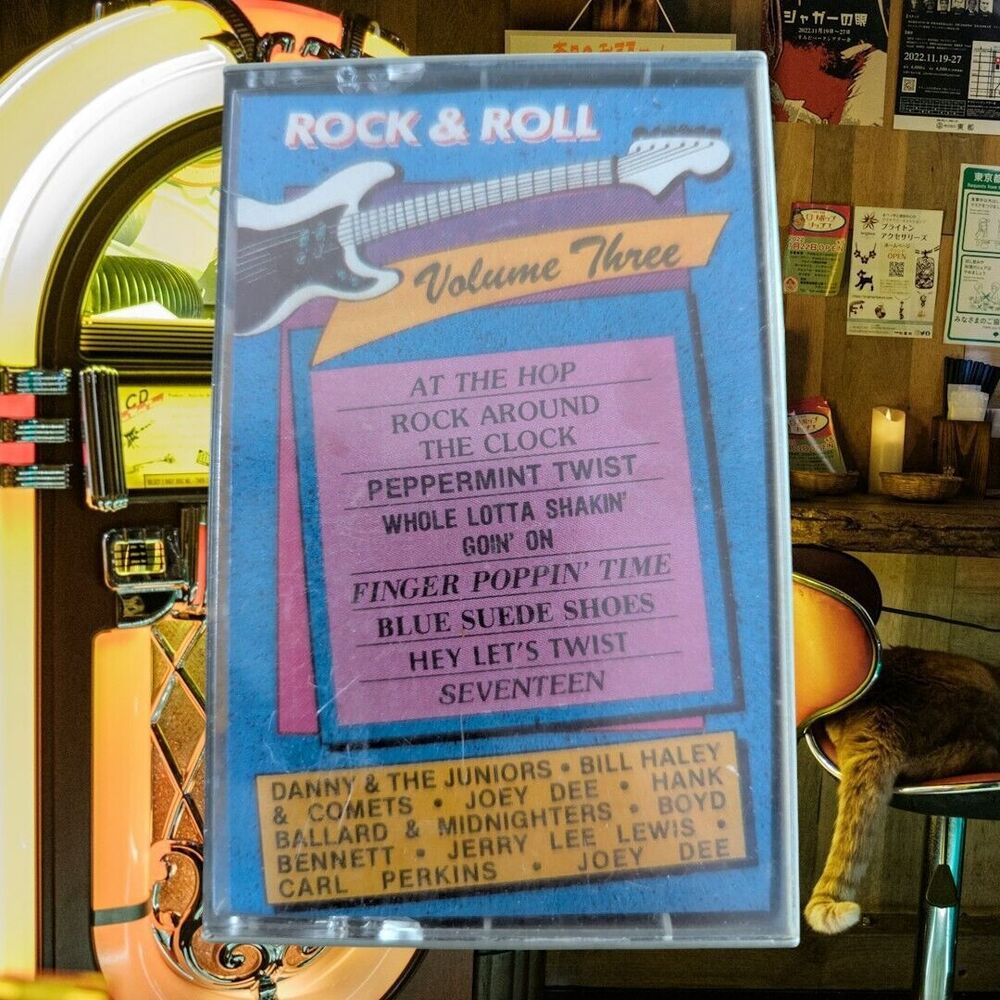 ROCK & ROLL
Volume Three
AT THE HOP
ROCK AROUND
THE CLOCK
PEPPERMINT TWIST
WHOLE LOTTA SHAKIN'
GOIN' ON
FINGER POPPIN' TIME
BLUE SUEDE SHOES
HEY LET'S TWIST
SEVENTEEN
DANNY & THE JUNIORS • BILL HALEY
& COMETS • JOEY DEE • HANK
BALLARD & MIDNIGHTERS • BOYD
BENNETT • JERRY LEE LEWIS •
CARL PERKINS • JOEY DEE
CD
ジャガーの眼
2022.11月19日～27日
2022.11.19-27
東京都
ブライトン
アクセサリーズ
OPEN
OPEN
みなさまのご